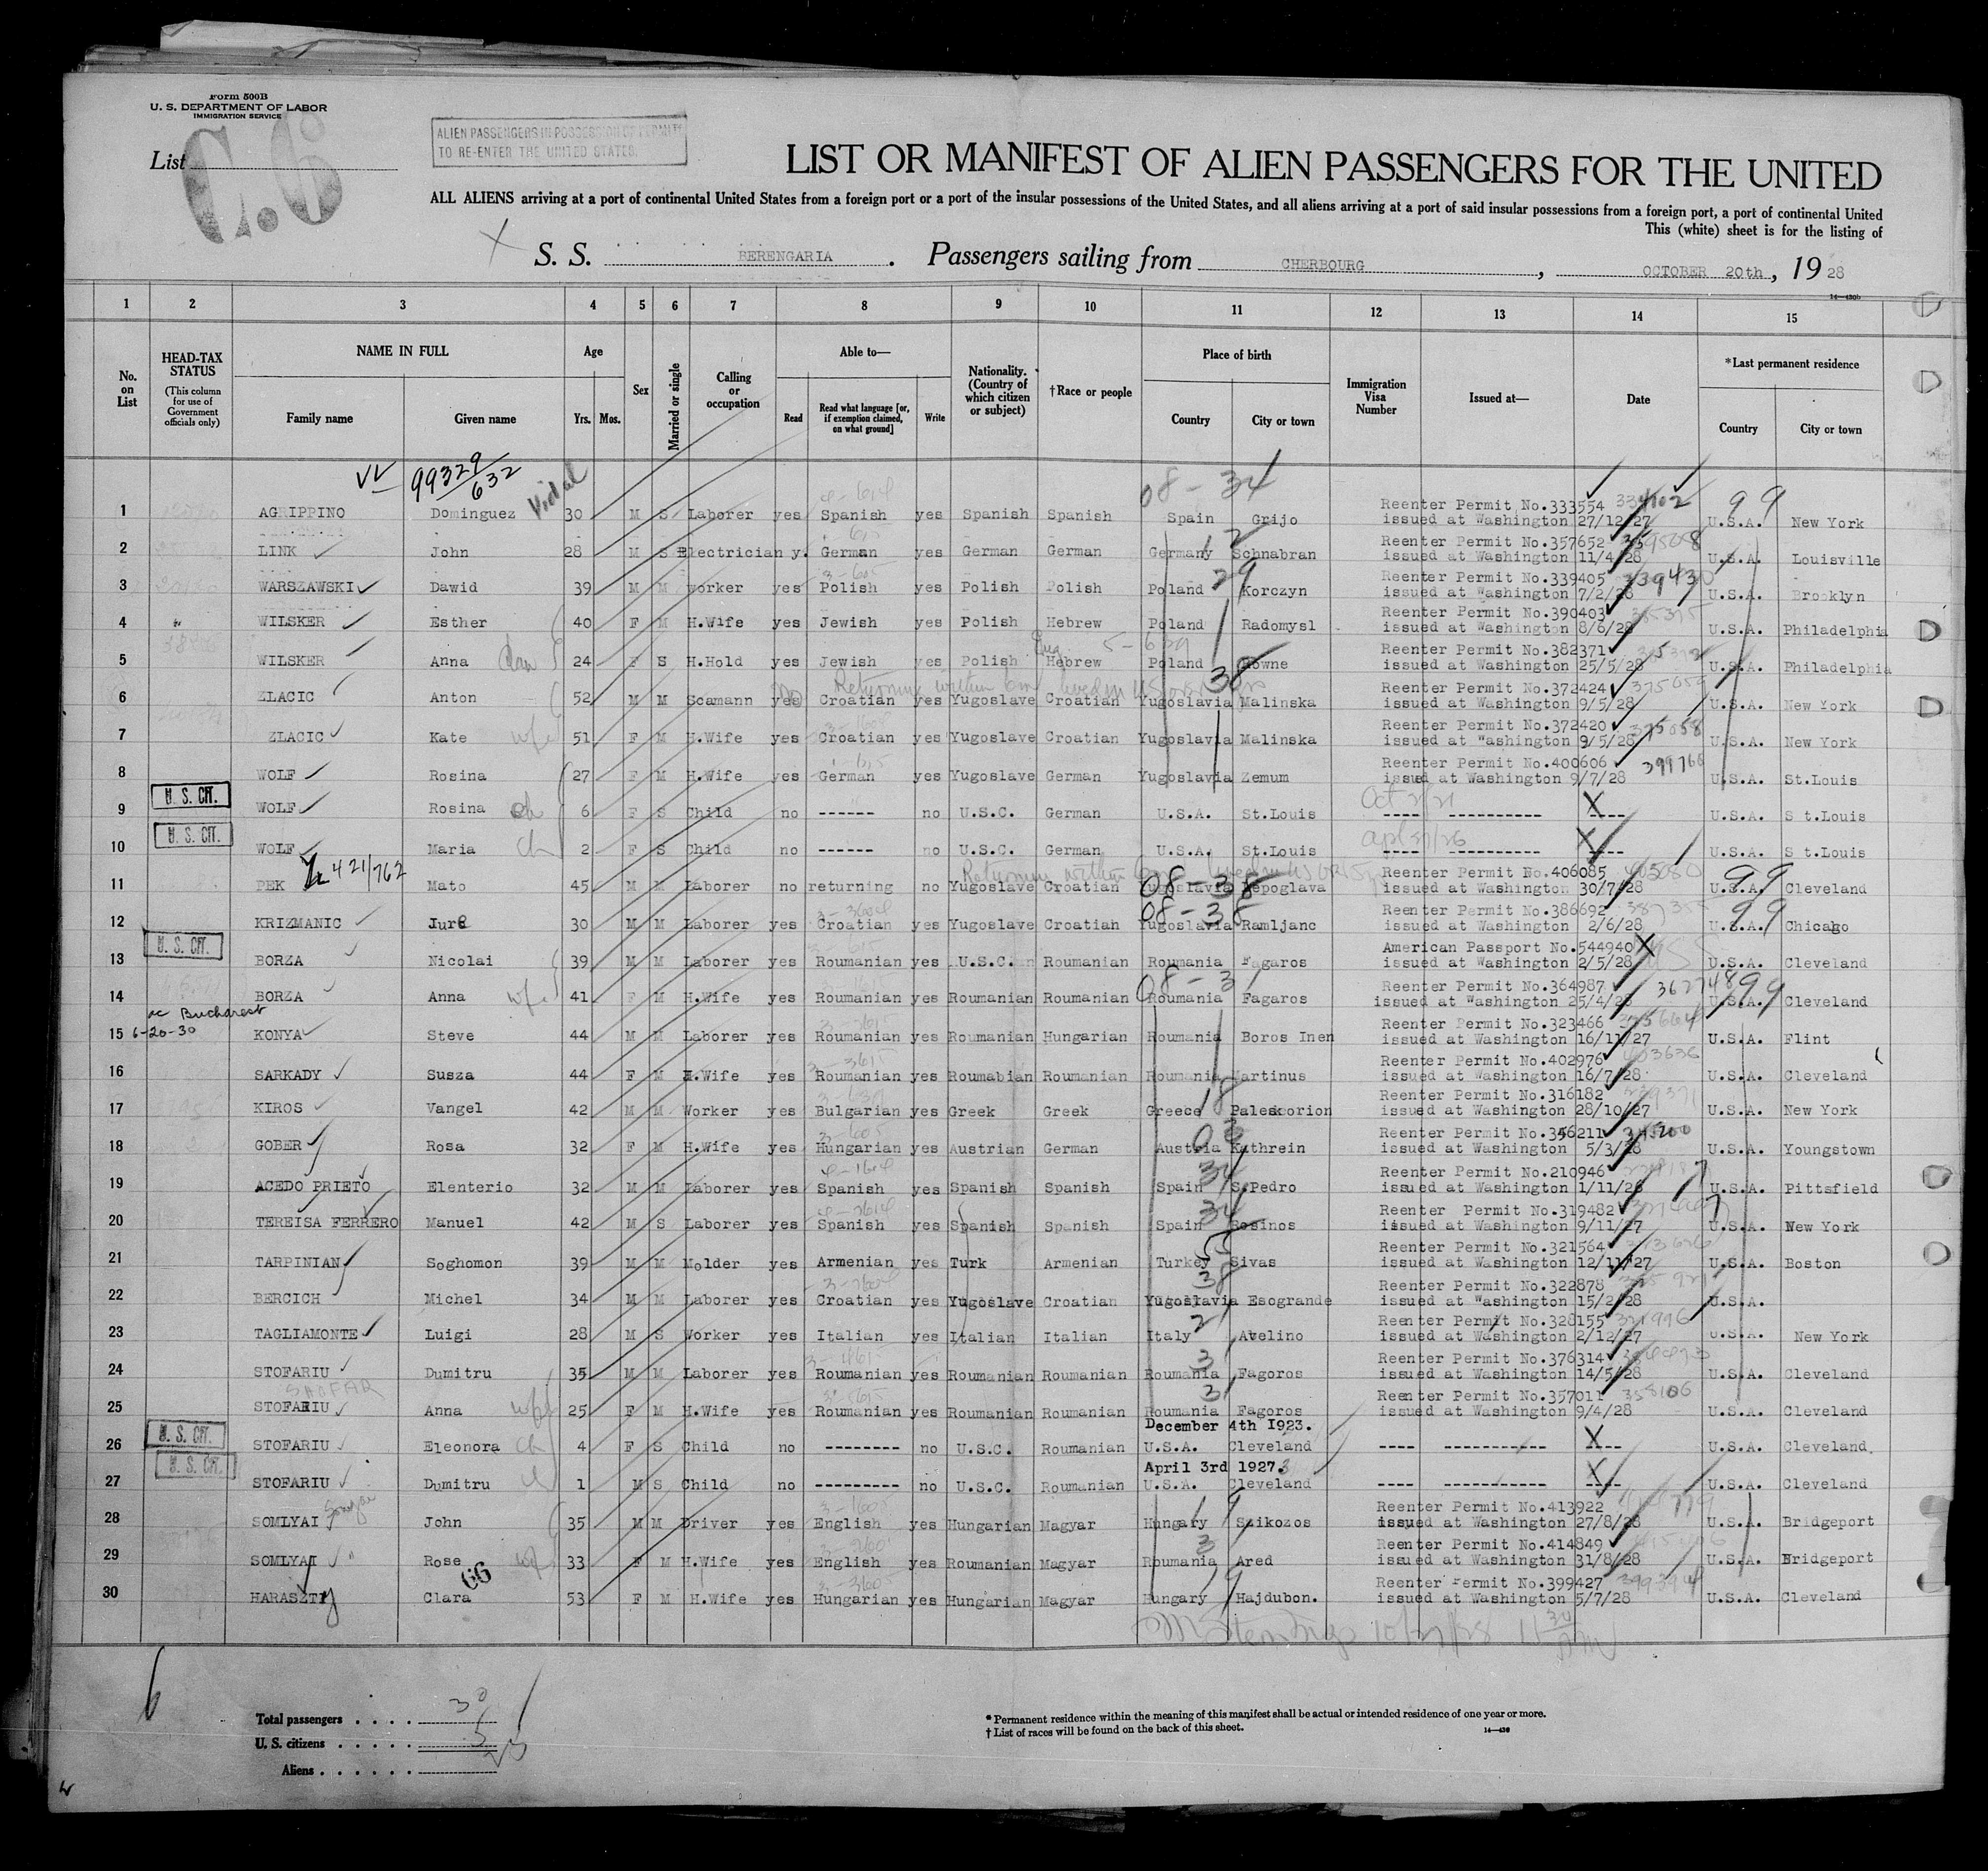 Form 500B
U. S. DEPARTMENT OF LABOR
IMMIGRATION SERVICE
List
C.6
ALIEN PASSENGERS IN POSSESSION OF PERMITS
TO RE-ENTER THE UNITED STATES.
LIST OR MANIFEST OF ALIEN PASSENGERS FOR THE UNITED
ALL ALIENS arriving at a port of continental United States from a foreign port or a port of the insular possessions of the United States, and all aliens arriving at a port of said insular possessions from a foreign port, a port of continental United
This (white) sheet is for the listing of
S. S. BERENGARIA. Passengers sailing from CHERBOURG, OCTOBER 20th, 1928
14—430b
1 2 3 4 5 6 7 8 9 10 11 12 13 14 15
No. on List
HEAD-TAX STATUS
(This column for use of Government officials only)
NAME IN FULL
Family name Given name
Age
Yrs. Mos.
Sex
Married or single
Calling or occupation
Able to—
Read Read what language [or, if exemption claimed, on what ground] Write
Nationality. (Country of which citizen or subject)
†Race or people
Place of birth
Country City or town
Immigration Visa Number
Issued at—
Date
*Last permanent residence
Country City or town
99329/632 Vidal
08-34 99
1 AGRIPPINO Dominguez 30 M S Laborer yes Spanish yes Spanish Spanish Spain Grijo Reenter Permit No.333554 issued at Washington 27/12/27 U.S.A. New York
2 LINK John 28 M S Electrician y. German yes German German Germany Schnabran Reenter Permit No.357652 issued at Washington 11/4/28 U.S.A. Louisville
3 WARSZAWSKI Dawid 39 M M worker yes Polish yes Polish Polish Poland Korczyn Reenter Permit No.339405 339430 issued at Washington 7/2/28 U.S.A. Brooklyn
4 WILSKER Esther 40 F M H.Wife yes Jewish yes Polish Hebrew Poland Radomysl Reenter Permit No.390403 issued at Washington 8/6/28 U.S.A. Philadelphia
5 WILSKER Anna 24 F S H.Hold yes Jewish yes Polish Hebrew Poland Rowne Reenter Permit No.382371 issued at Washington 25/5/28 U.S.A. Philadelphia
6 ZLACIC Anton 52 M M Seamann yes Croatian yes Yugoslave Croatian Yugoslavia Malinska Reenter Permit No.372424 issued at Washington 9/5/28 U.S.A. New York
7 ZLACIC Kate wife 51 F M H.Wife yes Croatian yes Yugoslave Croatian Yugoslavia Malinska Reenter Permit No.372420 375058 issued at Washington 9/5/28 U.S.A. New York
8 WOLF Rosina 27 F M H.Wife yes German yes Yugoslave German Yugoslavia Zemum Reenter Permit No.400606 399766 issued at Washington 9/7/28 U.S.A. St.Louis
U. S. CIT.
9 WOLF Rosina ch 6 F S Child no ------ no U.S.C. German U.S.A. St.Louis ---- ---------- ---- U.S.A. S t.Louis
U. S. CIT.
10 WOLF Maria ch 2 F S Child no ------ no U.S.C. German U.S.A. St.Louis ---- ---------- ---- U.S.A. S t.Louis
421/762
11 PEK Mato 45 M M Laborer no returning no Yugoslave Croatian Yugoslavia Lepoglava 08-38 Reenter Permit No.406085 issued at Washington 30/7/28 U.S.A. 99 Cleveland
12 KRIZMANIC Jure 30 M M Laborer yes Croatian yes Yugoslave Croatian Yugoslavia Ramljanc 08-38 Reenter Permit No.386692 issued at Washington 2/6/28 U.S.A. 99 Chicago
U. S. CIT.
13 BORZA Nicolai 39 M M Laborer yes Roumanian yes U.S.C. Roumanian Roumania Fagaros American Passport No.544940 issued at Washington 2/5/28 U.S.A. Cleveland
14 BORZA Anna wife 41 F M H.Wife yes Roumanian yes Roumanian Roumanian Roumania Fagaros 08-31 Reenter Permit No.364987 362748 issued at Washington 25/4/28 U.S.A. 99 Cleveland
ac Bucharest
6-20-30
15 KONYA Steve 44 M M Laborer yes Roumanian yes Roumanian Hungarian Roumania Boros Inen Reenter Permit No.323466 issued at Washington 16/11/27 U.S.A. Flint
16 SARKADY Susza 44 F M H.Wife yes Roumanian yes Roumabian Roumanian Roumania Martinus Reenter Permit No.402976 403636 issued at Washington 16/7/28 U.S.A. Cleveland
17 KIROS Vangel 42 M M Worker yes Bulgarian yes Greek Greek Greece Paleacorion Reenter Permit No.316182 issued at Washington 28/10/27 U.S.A. New York
18 GOBER Rosa 32 F M H.Wife yes Hungarian yes Austrian German Austia Kathrein Reenter Permit No.356211 issued at Washington 5/3/28 U.S.A. Youngstown
19 ACEDO PRIETO Elenterio 32 M M Laborer yes Spanish yes Spanish Spanish Spain S.Pedro Reenter Permit No.210946 issued at Washington 1/11/26 U.S.A. Pittsfield
20 TEREISA FERRERO Manuel 42 M S Laborer yes Spanish yes Spanish Spanish Spain Rosinos Reenter Permit No.319482 issued at Washington 9/11/27 U.S.A. New York
21 TARPINIAN Soghomon 39 M M Molder yes Armenian yes Turk Armenian Turkey Sivas Reenter Permit No.321564 issued at Washington 12/11/27 U.S.A. Boston
22 BERCICH Michel 34 M M Laborer yes Croatian yes Yugoslave Croatian Yugoslavia Esogrande Reenter Permit No.322878 issued at Washington 15/2/28 U.S.A.
23 TAGLIAMONTE Luigi 28 M S Worker yes Italian yes Italian Italian Italy Avelino Reenter Permit No.328155 321996 issued at Washington 2/12/27 U.S.A. New York
24 STOFARIU Dumitru 35 M M Laborer yes Roumanian yes Roumanian Roumanian Roumania Fagoros Reenter Permit No.376314 issued at Washington 14/5/28 U.S.A. Cleveland
SHOFAR
25 STOFARIU Anna wife 25 F M H.Wife yes Roumanian yes Roumanian Roumanian Roumania Fagoros Reenter Permit No.357011 358106 issued at Washington 9/4/28 U.S.A. Cleveland
December 4th 1923.
U. S. CIT.
26 STOFARIU Eleonora ch 4 F S Child no -------- no U.S.C. Roumanian U.S.A. Cleveland ---- ----------- ---- U.S.A. Cleveland
April 3rd 1927.
U. S. CIT.
27 STOFARIU Dumitru 1 M S Child no --------- no U.S.C. Roumanian U.S.A. Cleveland ---- ----------- ---- U.S.A. Cleveland
28 SOMLYAI John 35 M M Driver yes English yes Hungarian Magyar Hungary Szikozos Reenter Permit No.413922 issued at Washington 27/8/28 U.S.A. Bridgeport
29 SOMLYAI Rose 33 F M H.Wife yes English yes Roumanian Magyar Roumania Ared Reenter Permit No.414849 issued at Washington 31/8/28 U.S.A. Bridgeport
66
30 HARASZTY Clara 53 F M H.Wife yes Hungarian yes Hungarian Magyar Hungary Hajdubon. Reenter Permit No.399427 issued at Washington 5/7/28 U.S.A. Cleveland
Total passengers . . . . 30
U. S. citizens . . . . . 5
Aliens . . . . . . 25
* Permanent residence within the meaning of this manifest shall be actual or intended residence of one year or more.
† List of races will be found on the back of this sheet.
14—430